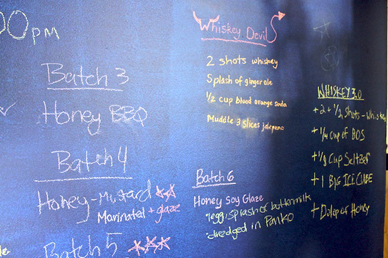 00pm
Batch 3
Honey BBQ
Batch 4
Honey-Mustard
Marinated + glaze
Batch 5
Whiskey Devil
2 shots whiskey
Splash of ginger ale
1/2 cup blood orange soda
Muddle 3 slices jalepeno
Batch 6
Honey Soy Glaze
1 egg, splash of buttermilk
dredged in Panko
WHISKEY 3.0
+ 2 + 1/2 shots - whiskey
+ 1/4 cup of BOS
+ 1/8 Cup Seltzer
+ 1 BIG ICE CUBE
+ Dolop of Honey